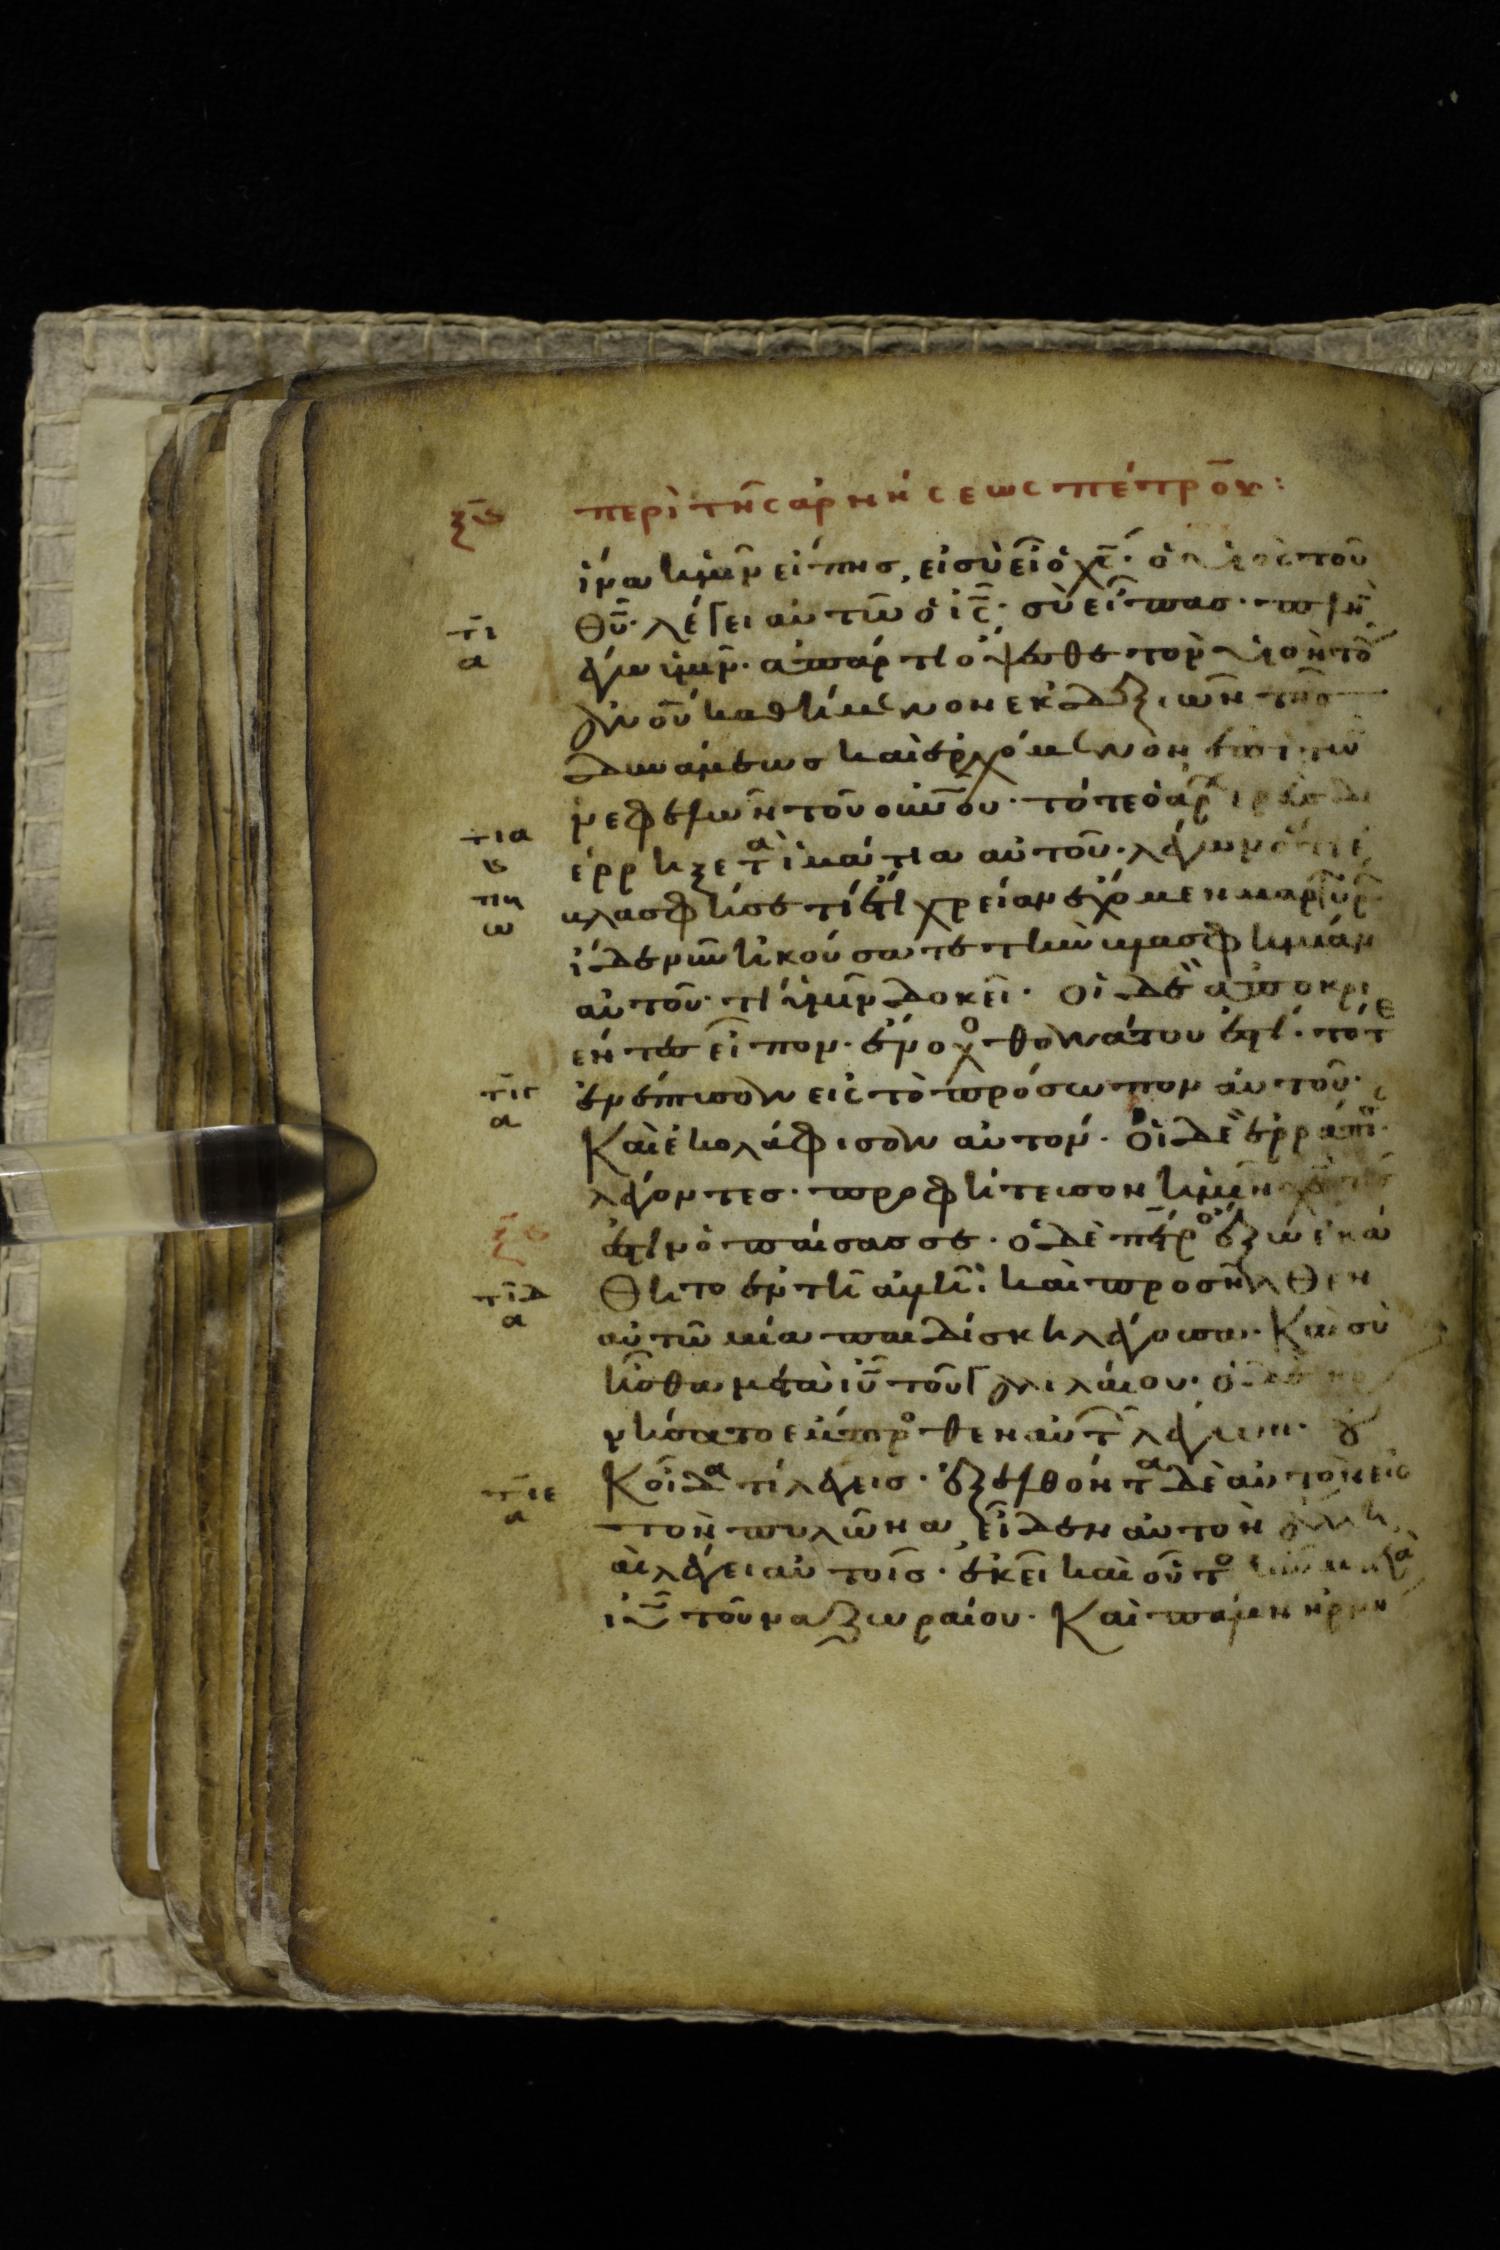 ξς περὶ τῆς ἀρνήσεως πέτρου:
ἵνα ἡμῖν εἴπης, εἰ σὺ εἶ ὁ χς· ὁ υἱὸς τοῦ
θυ· λέγει αὐτῶ ὁ ις· σὺ εἶπας· πλὴν
τι
α λέγω ὑμῖν· ἀπάρτι ὄψεσθε τὸν υἱὸν τοῦ
ανου καθήμενον ἐκ δεξιῶν τῆς
δυνάμεως καὶ ἐρχόμενον ἐπὶ τῶν
νεφελῶν τοῦ οὐνου· τότε ὁ ἀρχιερεὺς δι
τια
ς έρρηξε τὰ ἱμάτια αὐτοῦ· λέγων ὅτι ἐ
τιβ
ω βλασφήμησε τί ἔτι χρείαν ἔχομεν μαρτύρων
ἴδε νῦν ἠκούσατε τὴν βλασφημίαν
αὐτοῦ· τί ὑμῖν δοκεῖ· οἱ δὲ ἀποκρι
θέντες εἶπον· ἔνοχος θανάτου ἐστί· τότε
τιγ
α ἐνέπτυσαν εἰς τὸ πρόσωπον αὐτοῦ·
Καὶ ἐκολάφισαν αὐτόν· οἱ δὲ ἐρράπισαν
λέγοντες· προφήτευσον ἡμῖν χε τίς
ξς ἐστιν ὁ παίσας σε· ὁ δὲ πέτρος ἔξω ἐκά
τιδ
α θητο ἐν τῆ αὐλῆ· καὶ προσῆλθεν
αὐτῶ μία παιδίσκη λέγουσα· Καὶ σὺ
ἦσθα μετὰ ιυ τοῦ γαλιλαίου· ὁ δὲ ἠρ
νήσατο ἔμπροσθεν αὐτῶν λέγων· οὐ
Κ οἶδα τί λέγεις· ἐξελθόντα δὲ αὐτὸν εἰς
τιε
α τὸν πυλῶνα, εἶδεν αὐτὸν ἄλλη
καὶ λέγει αὐτοῖς· ἐκεῖ καὶ οὗτος ἦν μετὰ
ιυ τοῦ ναζωραίου· Καὶ πάλιν ἠρνή